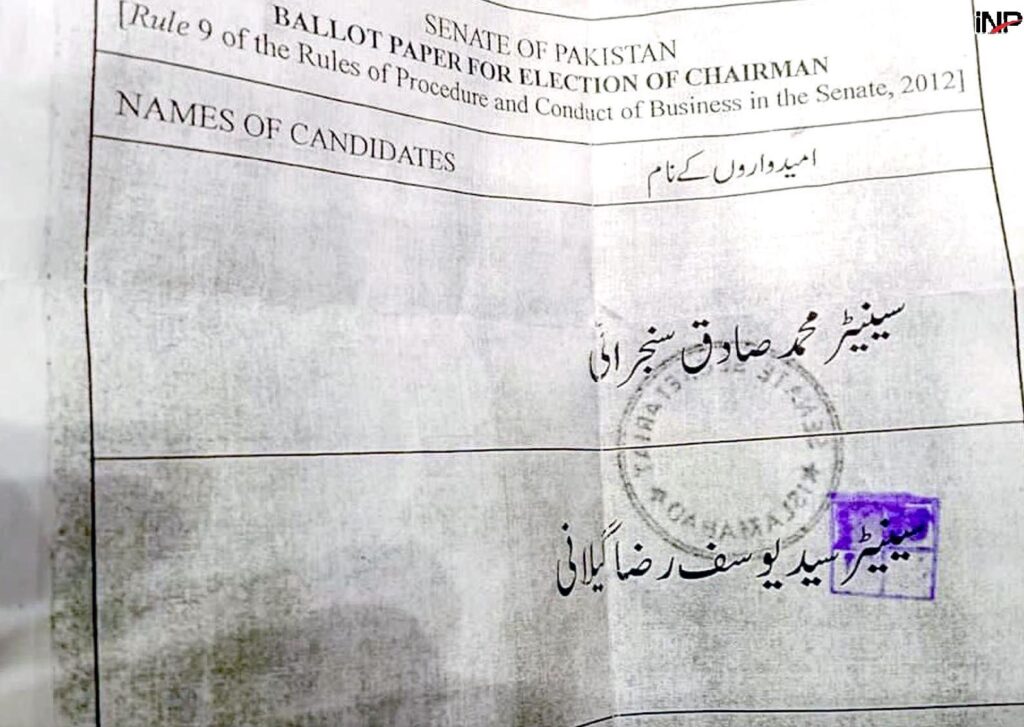 iNP
SENATE OF PAKISTAN
BALLOT PAPER FOR ELECTION OF CHAIRMAN
[Rule 9 of the Rules of Procedure and Conduct of Business in the Senate, 2012]
NAMES OF CANDIDATES
امیدواروں کے نام
سینیٹر محمد صادق سنجرانی
SENATE SECRETARIAT ★ ISLAMABAD ★
سینیٹر سید یوسف رضا گیلانی